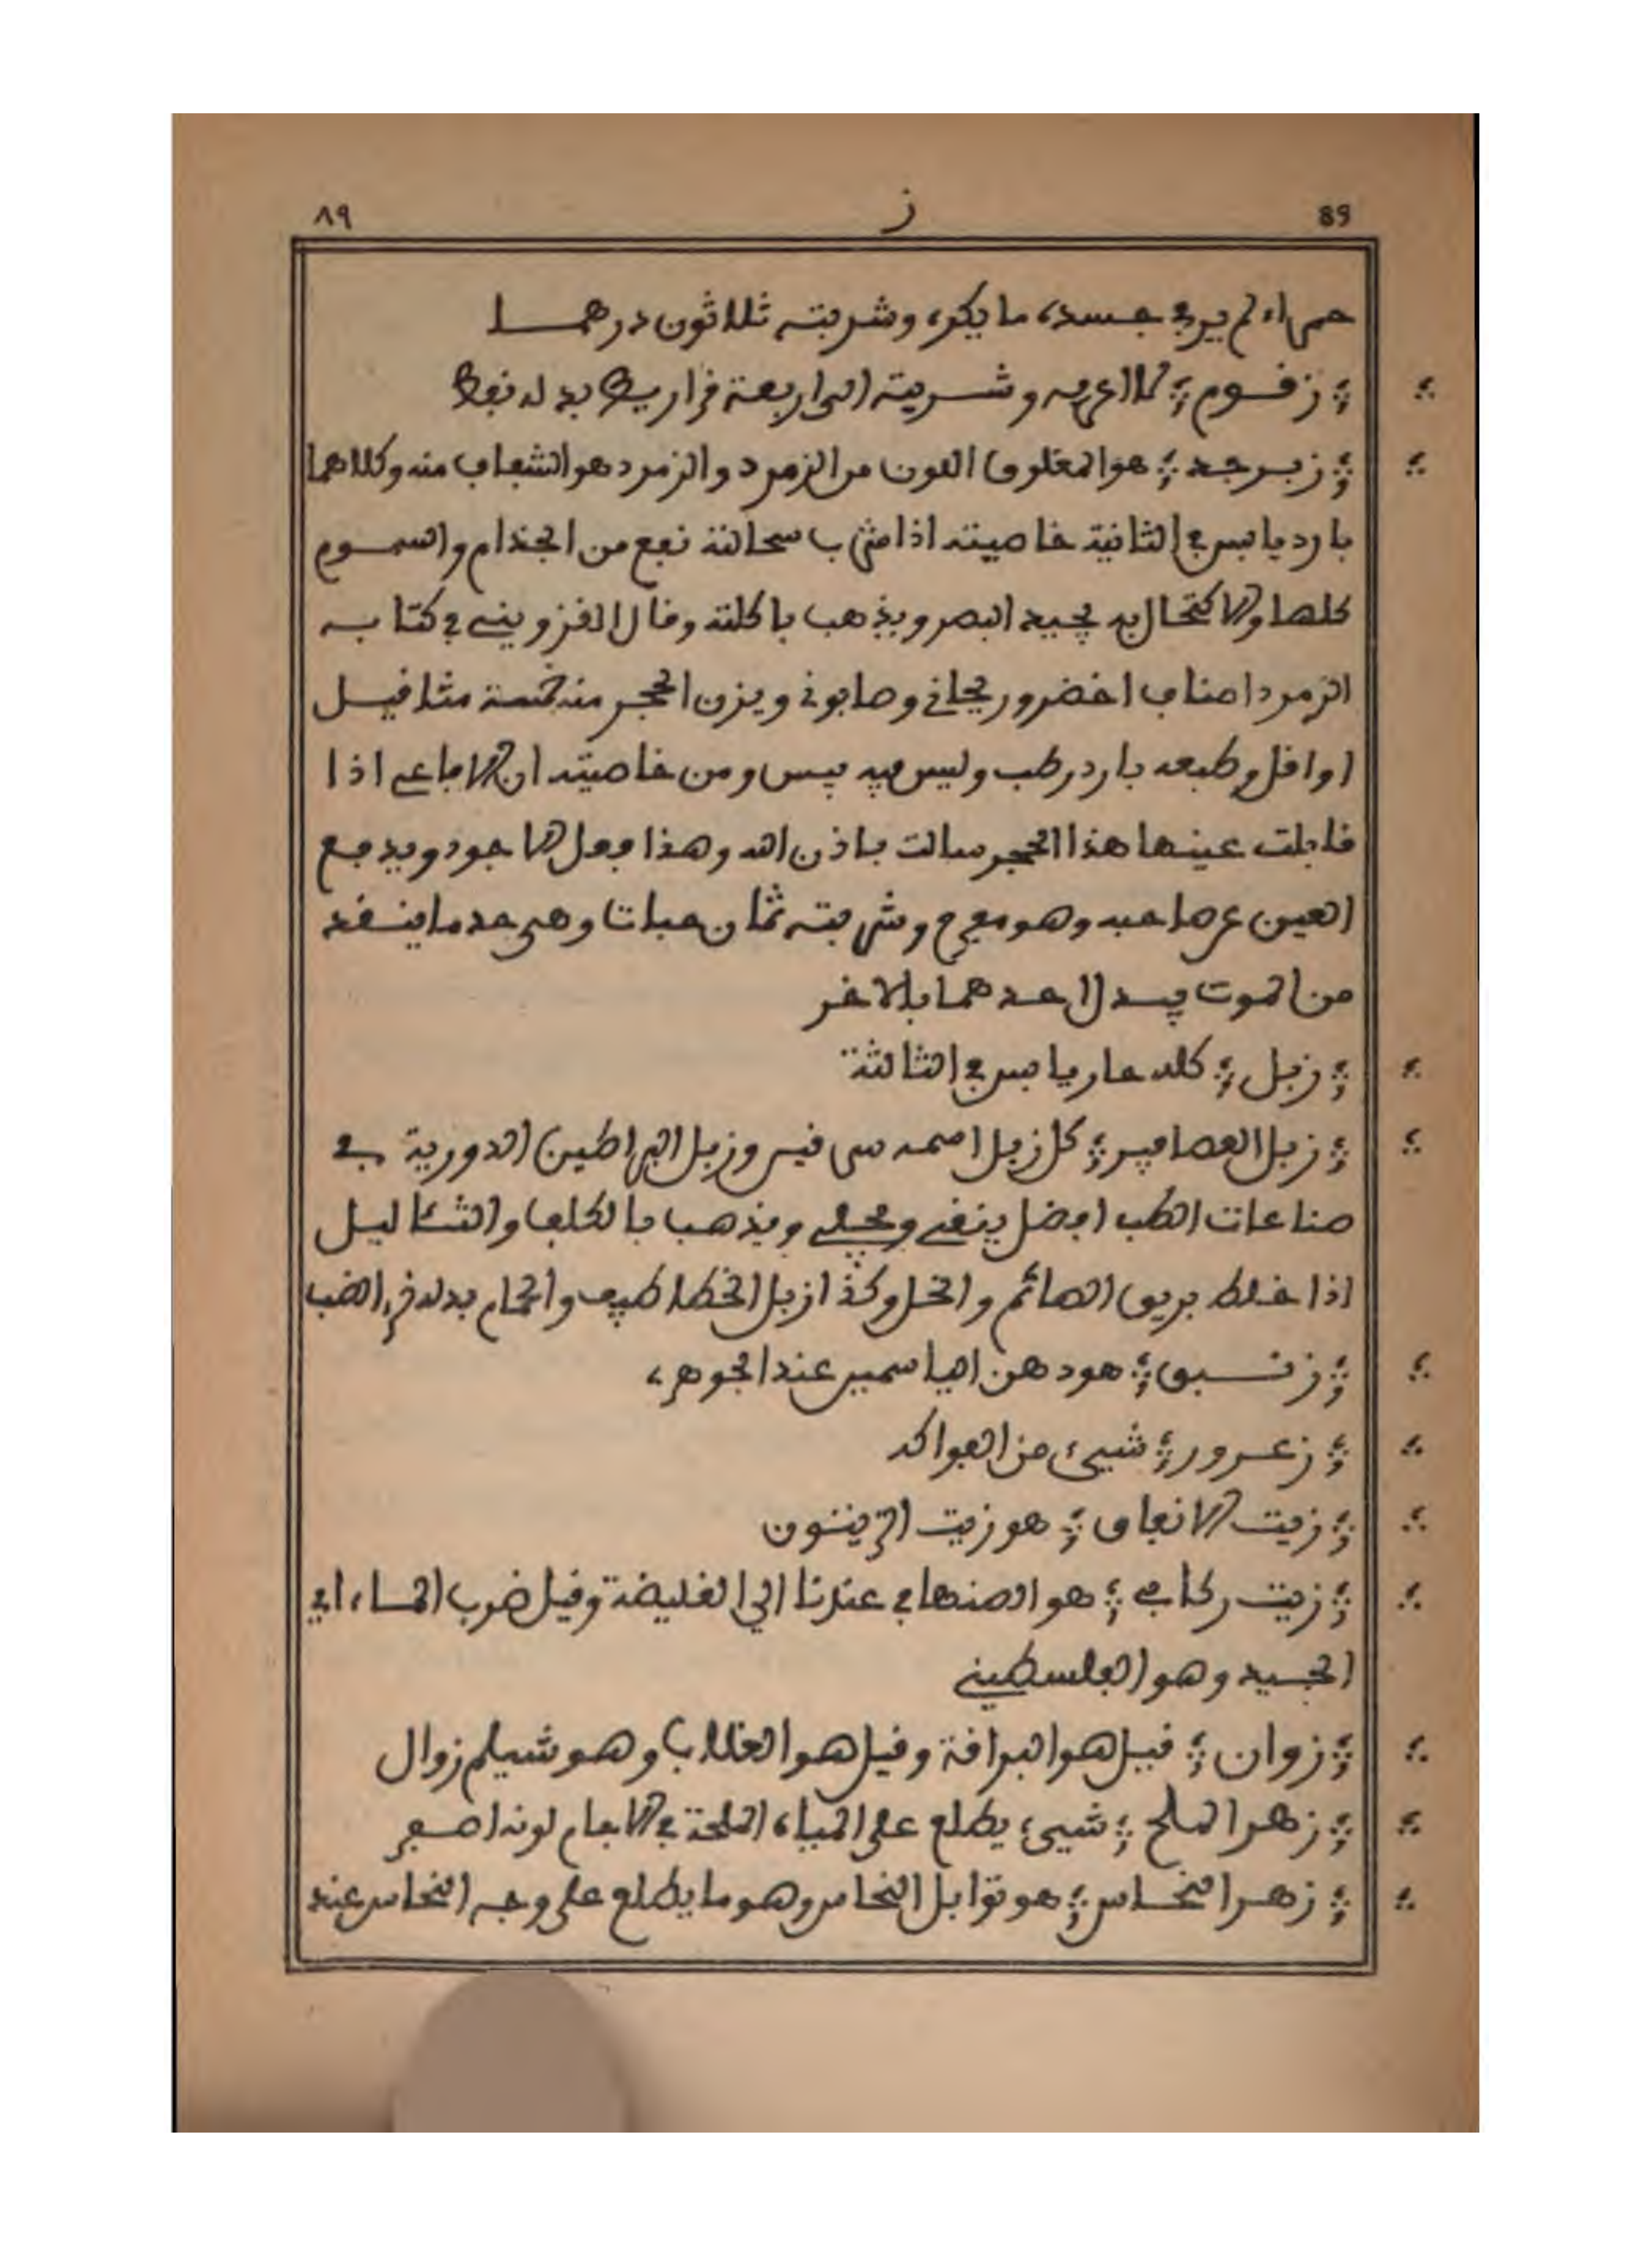 89 ز ٨٩
حمراء لم ير في جسده ما يكره وشربته ثلاثون درهما
؛ زقوم ؛ وشربته الى اربعة قراريط بدله نفط
؛ زبرجد ؛ هو المغلوق اللون من الزمرد والزمرد هو الشفاف منه وكلاهما
بارد يابس في الثانية خاصيته اذا شرب سحالته نفع من الجذام والسموم
كلها والاكتحال به يحيد البصر ويذهب باكلته وقال القزويني في كتابه
الزمرد اصناف اخضر وريحاني وصابوني ويزن الحجر منه خمسة مثاقيل
او اقل وطبعه بارد رطب وليس فيه يبس ومن خاصيته ان الافاعي اذا
قابلت عينها هذا الحجر سالت باذن الله وهذا فعل الاجود ويدفع
العين عن صاحبه وهو مفرح وشربته ثمان حبات وهي حد ما ينقذ
من الموت يبدل احدهما بالاخر
؛ زبل ؛ كله حار يابس في الثالثة
؛ زبل العصافير ؛ كل زبل اسمه سرقيس وزبل البراطين الدورية في
صناعات الطب افضل ينقي ويجلي ويذهب بالكلف والثئاليل
اذا خلط بريق الصائم والخل وكذا زبل الخطاطيف والحمام بدله الضب
؛ زنبق ؛ هو دهن الياسمين عند الجوهري
؛ زعرور ؛ شيئ من الفواكه
؛ زيت الانفاق ؛ هو زيت الزيتون
؛ زيت ركابي ؛ هو الصنهاجي عندنا الي الغليضة وقيل ضرب الماء اي
الجيد وهو الفلسطيني
؛ زوان ؛ قيل هو البراقة وقيل هو الغلاب وهو شيلم زوال
؛ زهر الملح ؛ شيئ يطلع على المياه الملحة في الاجام لونه اصفر
؛ زهر النحاس ؛ هو توابل النحاس وهو ما يطلع على وجه النحاس عند